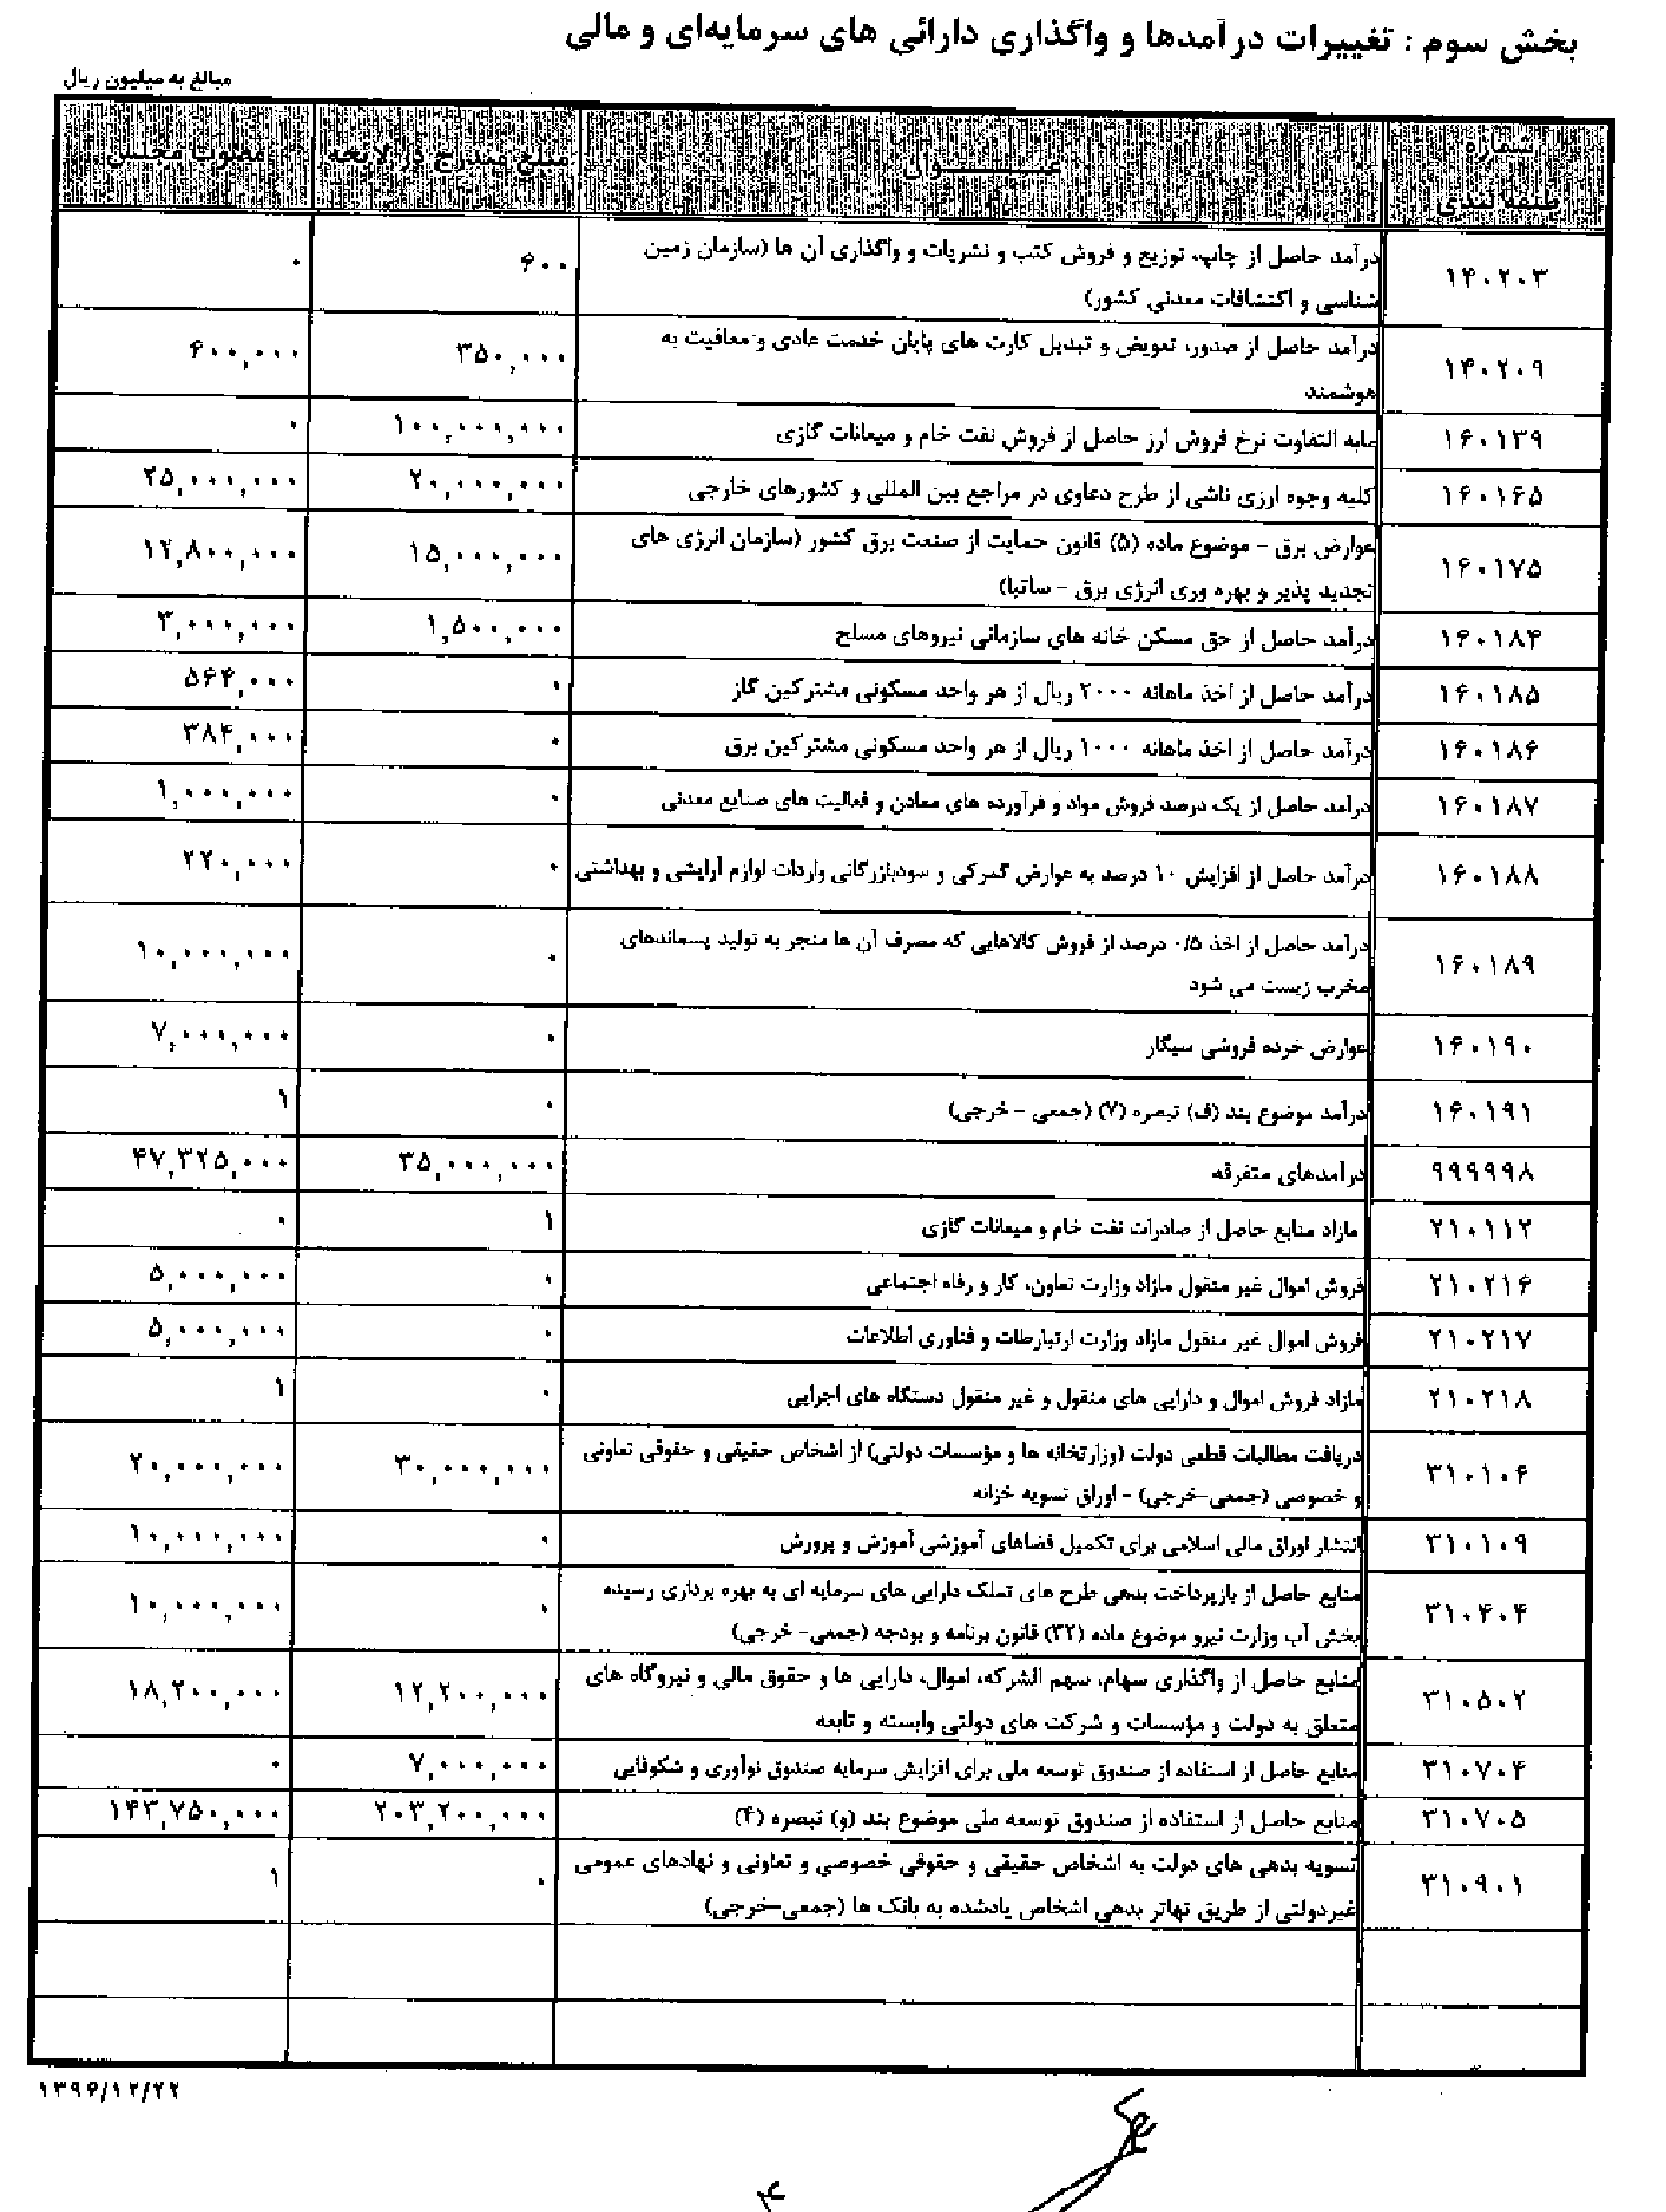 بخش سوم : تغییرات درآمدها و واگذاری دارائی های سرمایه‌ای و مالی
مبالغ به میلیون ریال
شماره طبقه بندی عنـــــــوان مبلغ مندرج در لایحه مصوب مجلس
۱۴۰۲۰۳ درآمد حاصل از چاپ، توزیع و فروش کتب و نشریات و واگذاری آن ها (سازمان زمین ۶۰۰ ۰
شناسی و اکتشافات معدنی کشور)
۱۴۰۲۰۹ درآمد حاصل از صدور، تعویض و تبدیل کارت های پایان خدمت عادی و معافیت به ۳۵۰,۰۰۰ ۶۰۰,۰۰۰
هوشمند
۱۶۰۱۳۹ مابه التفاوت نرخ فروش ارز حاصل از فروش نفت خام و میعانات گازی ۱۰۰,۰۰۰,۰۰۰ ۰
۱۶۰۱۶۵ کلیه وجوه ارزی ناشی از طرح دعاوی در مراجع بین المللی و کشورهای خارجی ۲۰,۰۰۰,۰۰۰ ۲۵,۰۰۰,۰۰۰
۱۶۰۱۷۵ عوارض برق - موضوع ماده (۵) قانون حمایت از صنعت برق کشور (سازمان انرژی های ۱۵,۰۰۰,۰۰۰ ۱۲,۸۰۰,۰۰۰
تجدید پذیر و بهره وری انرژی برق - ساتبا)
۱۶۰۱۸۴ درآمد حاصل از حق مسکن خانه های سازمانی نیروهای مسلح ۱,۵۰۰,۰۰۰ ۳,۰۰۰,۰۰۰
۱۶۰۱۸۵ درآمد حاصل از اخذ ماهانه ۲۰۰۰ ریال از هر واحد مسکونی مشترکین گاز ۰ ۵۶۴,۰۰۰
۱۶۰۱۸۶ درآمد حاصل از اخذ ماهانه ۱۰۰۰ ریال از هر واحد مسکونی مشترکین برق ۰ ۳۸۴,۰۰۰
۱۶۰۱۸۷ درآمد حاصل از یک درصد فروش مواد و فرآورده های معادن و فعالیت های صنایع معدنی ۰ ۱,۰۰۰,۰۰۰
۱۶۰۱۸۸ درآمد حاصل از افزایش ۱۰ درصد به عوارض گمرکی و سودبازرگانی واردات لوازم آرایشی و بهداشتی ۰ ۲۲۰,۰۰۰
۱۶۰۱۸۹ درآمد حاصل از اخذ ۰/۵ درصد از فروش کالاهایی که مصرف آن ها منجر به تولید پسماندهای ۰ ۱۰,۰۰۰,۰۰۰
مخرب زیست می شود
۱۶۰۱۹۰ عوارض خرده فروشی سیگار ۰ ۷,۰۰۰,۰۰۰
۱۶۰۱۹۱ درآمد موضوع بند (ف) تبصره (۷) (جمعی - خرجی) ۰ ۱
۹۹۹۹۹۸ درآمدهای متفرقه ۳۵,۰۰۰,۰۰۰ ۴۷,۳۲۵,۰۰۰
۲۱۰۱۱۲ مازاد منابع حاصل از صادرات نفت خام و میعانات گازی ۱ ۰
۲۱۰۲۱۶ فروش اموال غیر منقول مازاد وزارت تعاون، کار و رفاه اجتماعی ۰ ۵,۰۰۰,۰۰۰
۲۱۰۲۱۷ فروش اموال غیر منقول مازاد وزارت ارتباطات و فناوری اطلاعات ۰ ۵,۰۰۰,۰۰۰
۲۱۰۲۱۸ مازاد فروش اموال و دارایی های منقول و غیر منقول دستگاه های اجرایی ۰ ۱
۳۱۰۱۰۶ دریافت مطالبات قطعی دولت (وزارتخانه ها و مؤسسات دولتی) از اشخاص حقیقی و حقوقی تعاونی ۳۰,۰۰۰,۰۰۰ ۲۰,۰۰۰,۰۰۰
و خصوصی (جمعی-خرجی) - اوراق تسویه خزانه
۳۱۰۱۰۹ انتشار اوراق مالی اسلامی برای تکمیل فضاهای آموزشی آموزش و پرورش ۰ ۱۰,۰۰۰,۰۰۰
۳۱۰۴۰۴ منابع حاصل از بازپرداخت بدهی طرح های تملک دارایی های سرمایه ای به بهره برداری رسیده ۰ ۱۰,۰۰۰,۰۰۰
بخش آب وزارت نیرو موضوع ماده (۳۲) قانون برنامه و بودجه (جمعی- خرجی)
۳۱۰۵۰۲ منابع حاصل از واگذاری سهام، سهم الشرکه، اموال، دارایی ها و حقوق مالی و نیروگاه های ۱۲,۲۰۰,۰۰۰ ۱۸,۲۰۰,۰۰۰
متعلق به دولت و مؤسسات و شرکت های دولتی وابسته و تابعه
۳۱۰۷۰۴ منابع حاصل از استفاده از صندوق توسعه ملی برای افزایش سرمایه صندوق نوآوری و شکوفایی ۷,۰۰۰,۰۰۰ ۰
۳۱۰۷۰۵ منابع حاصل از استفاده از صندوق توسعه ملی موضوع بند (و) تبصره (۴) ۲۰۳,۲۰۰,۰۰۰ ۱۴۳,۷۵۰,۰۰۰
۳۱۰۹۰۱ تسویه بدهی های دولت به اشخاص حقیقی و حقوقی خصوصی و تعاونی و نهادهای عمومی ۰ ۱
غیردولتی از طریق تهاتر بدهی اشخاص یادشده به بانک ها (جمعی-خرجی)
۱۳۹۶/۱۲/۲۲